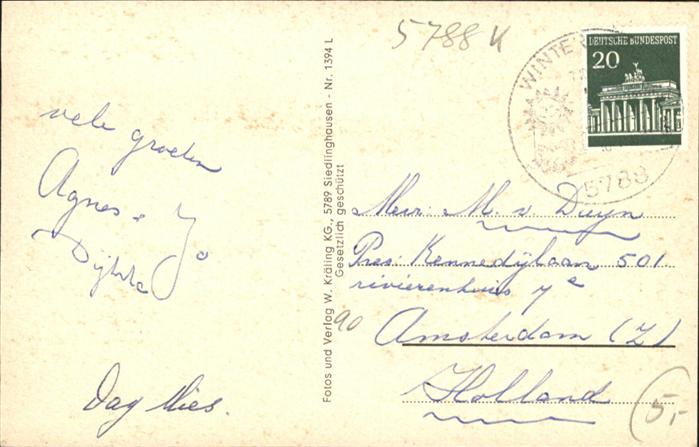 5788 W
WINTER
5788
DEUTSCHE BUNDESPOST
20
vele groeten
Agnes & Jo
Dag Mies.
Fotos und Verlag W. Kräling KG., 5789 Siedlinghausen - Nr. 1394 L
Gesetzlich geschützt
Mevr. M. v. Duyn
Pres. Kennedylaan 501.
rivierenhuis 7e
Amsterdam (Z)
Holland
90
5,-